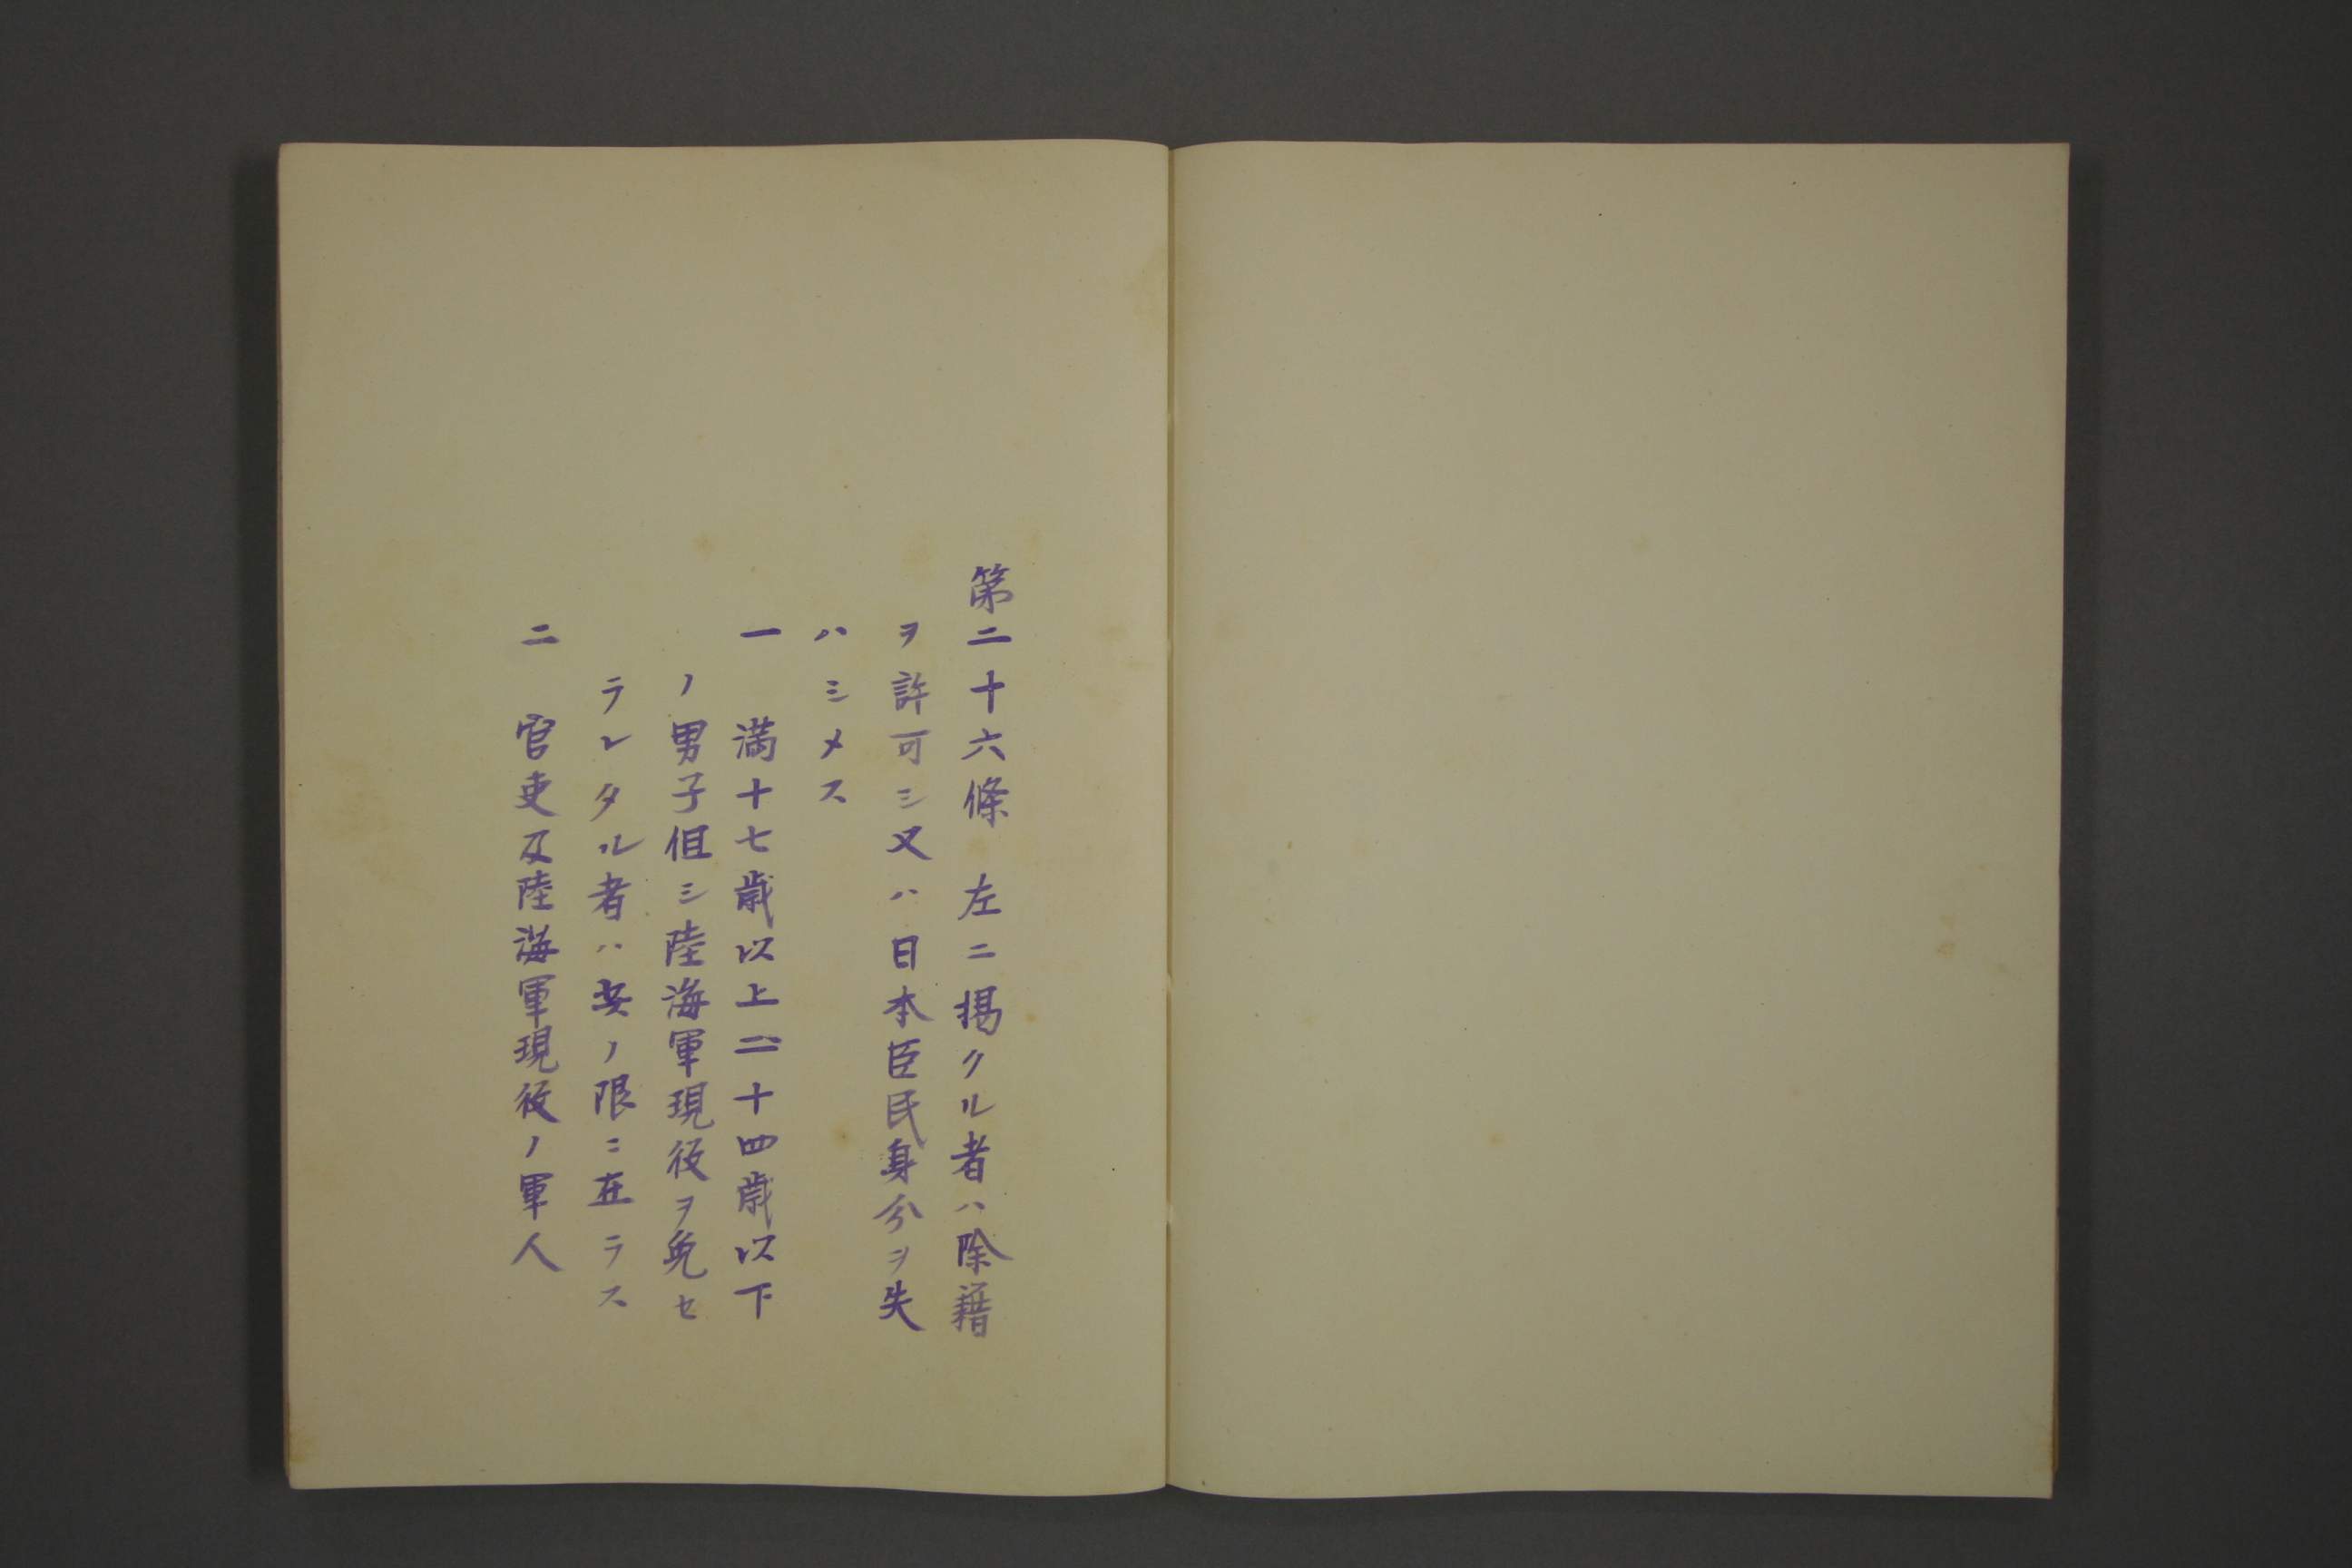 第二十六條　左ニ掲クル者ハ除籍
ヲ許可シ又ハ日本臣民身分ヲ失
ハシメス
一　満十七歳以上二十四歳以下
ノ男子但シ陸海軍現役ヲ免セ
ラレタル者ハ此ノ限ニ在ラス
二　官吏及陸海軍現役ノ軍人